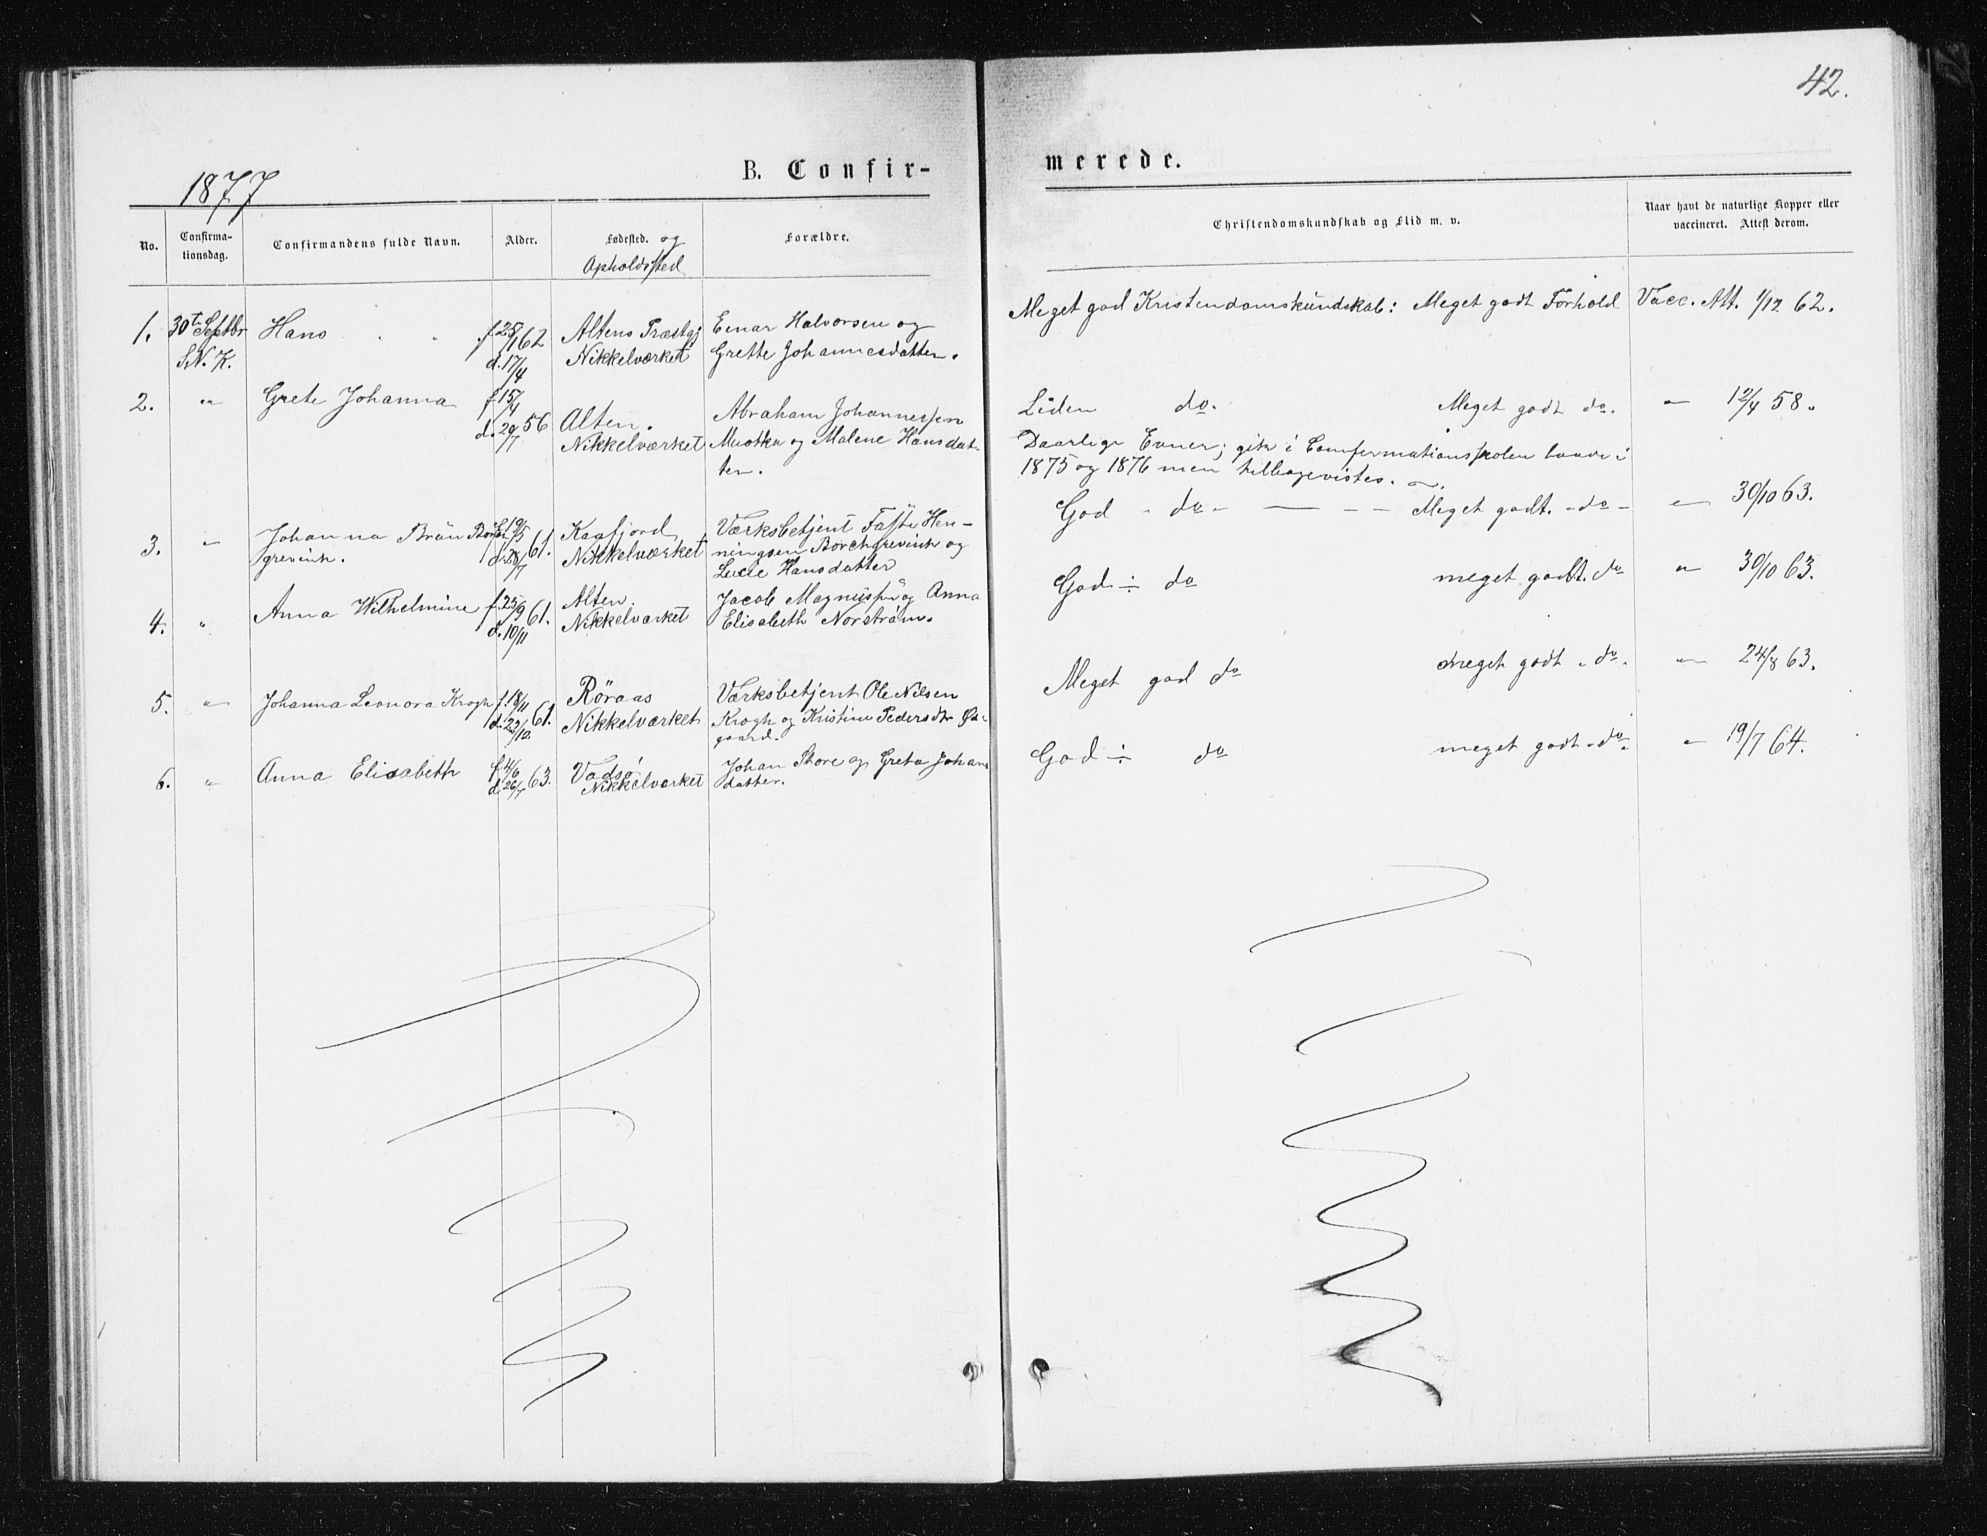 42.
1877
B. Confir-
merede.
No.
Confirma-
tionsdag.
Confirmandens fulde Navn.
Alder.
Fødested. og
Opholdssted
Forældre.
Christendomskundskab og Flid m. v.
Naar havt de naturlige Kopper eller
vaccineret. Attest derom.
1. 30te Septbr Hans f. 25/1 62 Altens Præstgj Einar Halvorsen og
S.N.K. d. 17/4 Nikkelværket Grette Johannesdatter.
Meget god Kristendomskundskab: Meget godt Forhold Vacc. Att. 1/12 62.
2. " Grete Johanna f. 15/4 56 Alten. Abraham Johannessen
d. 29/7 Nikkelværket Muotka og Malene Hansdat-
ter.
Liden do. Meget godt do. " 12/4 58.
Daarlige Evner; gik i Confirmationsskolen baade i
1875 og 1876 men tilbagevistes.
3. " Johanna Brün Borch f. 19/5 61. Kaafjord, Værksbetjent Faste Hen-
grevink. d. 28/7 Nikkelværket ningsen Borchgrevink og
Lucie Hansdatter
God - do - Meget godt. - do - " 30/10 63.
4. " Anna Wilhelmine f. 25/9 61. Alten. Jacob Magnussen og Anna
d. 10/11 Nikkelværket Elisabeth Norström.
God ÷ do meget godt. do " 30/10 63.
5. " Johanna Leonora Krogh f. 18/11 61. Röraas Værksbetjent Ole Nilsen
d. 22/10. Nikkelværket Krogh og Kristine Pedersdtr Ød-
gaard.
Meget god do meget godt - do. " 24/8 63.
6. " Anna Elisabeth f. 4/6 63. Vadsö Johan Store og Greta Johans
d. 26/7 Nikkelværket datter.
God ÷ do meget godt - do. " 19/7 64.